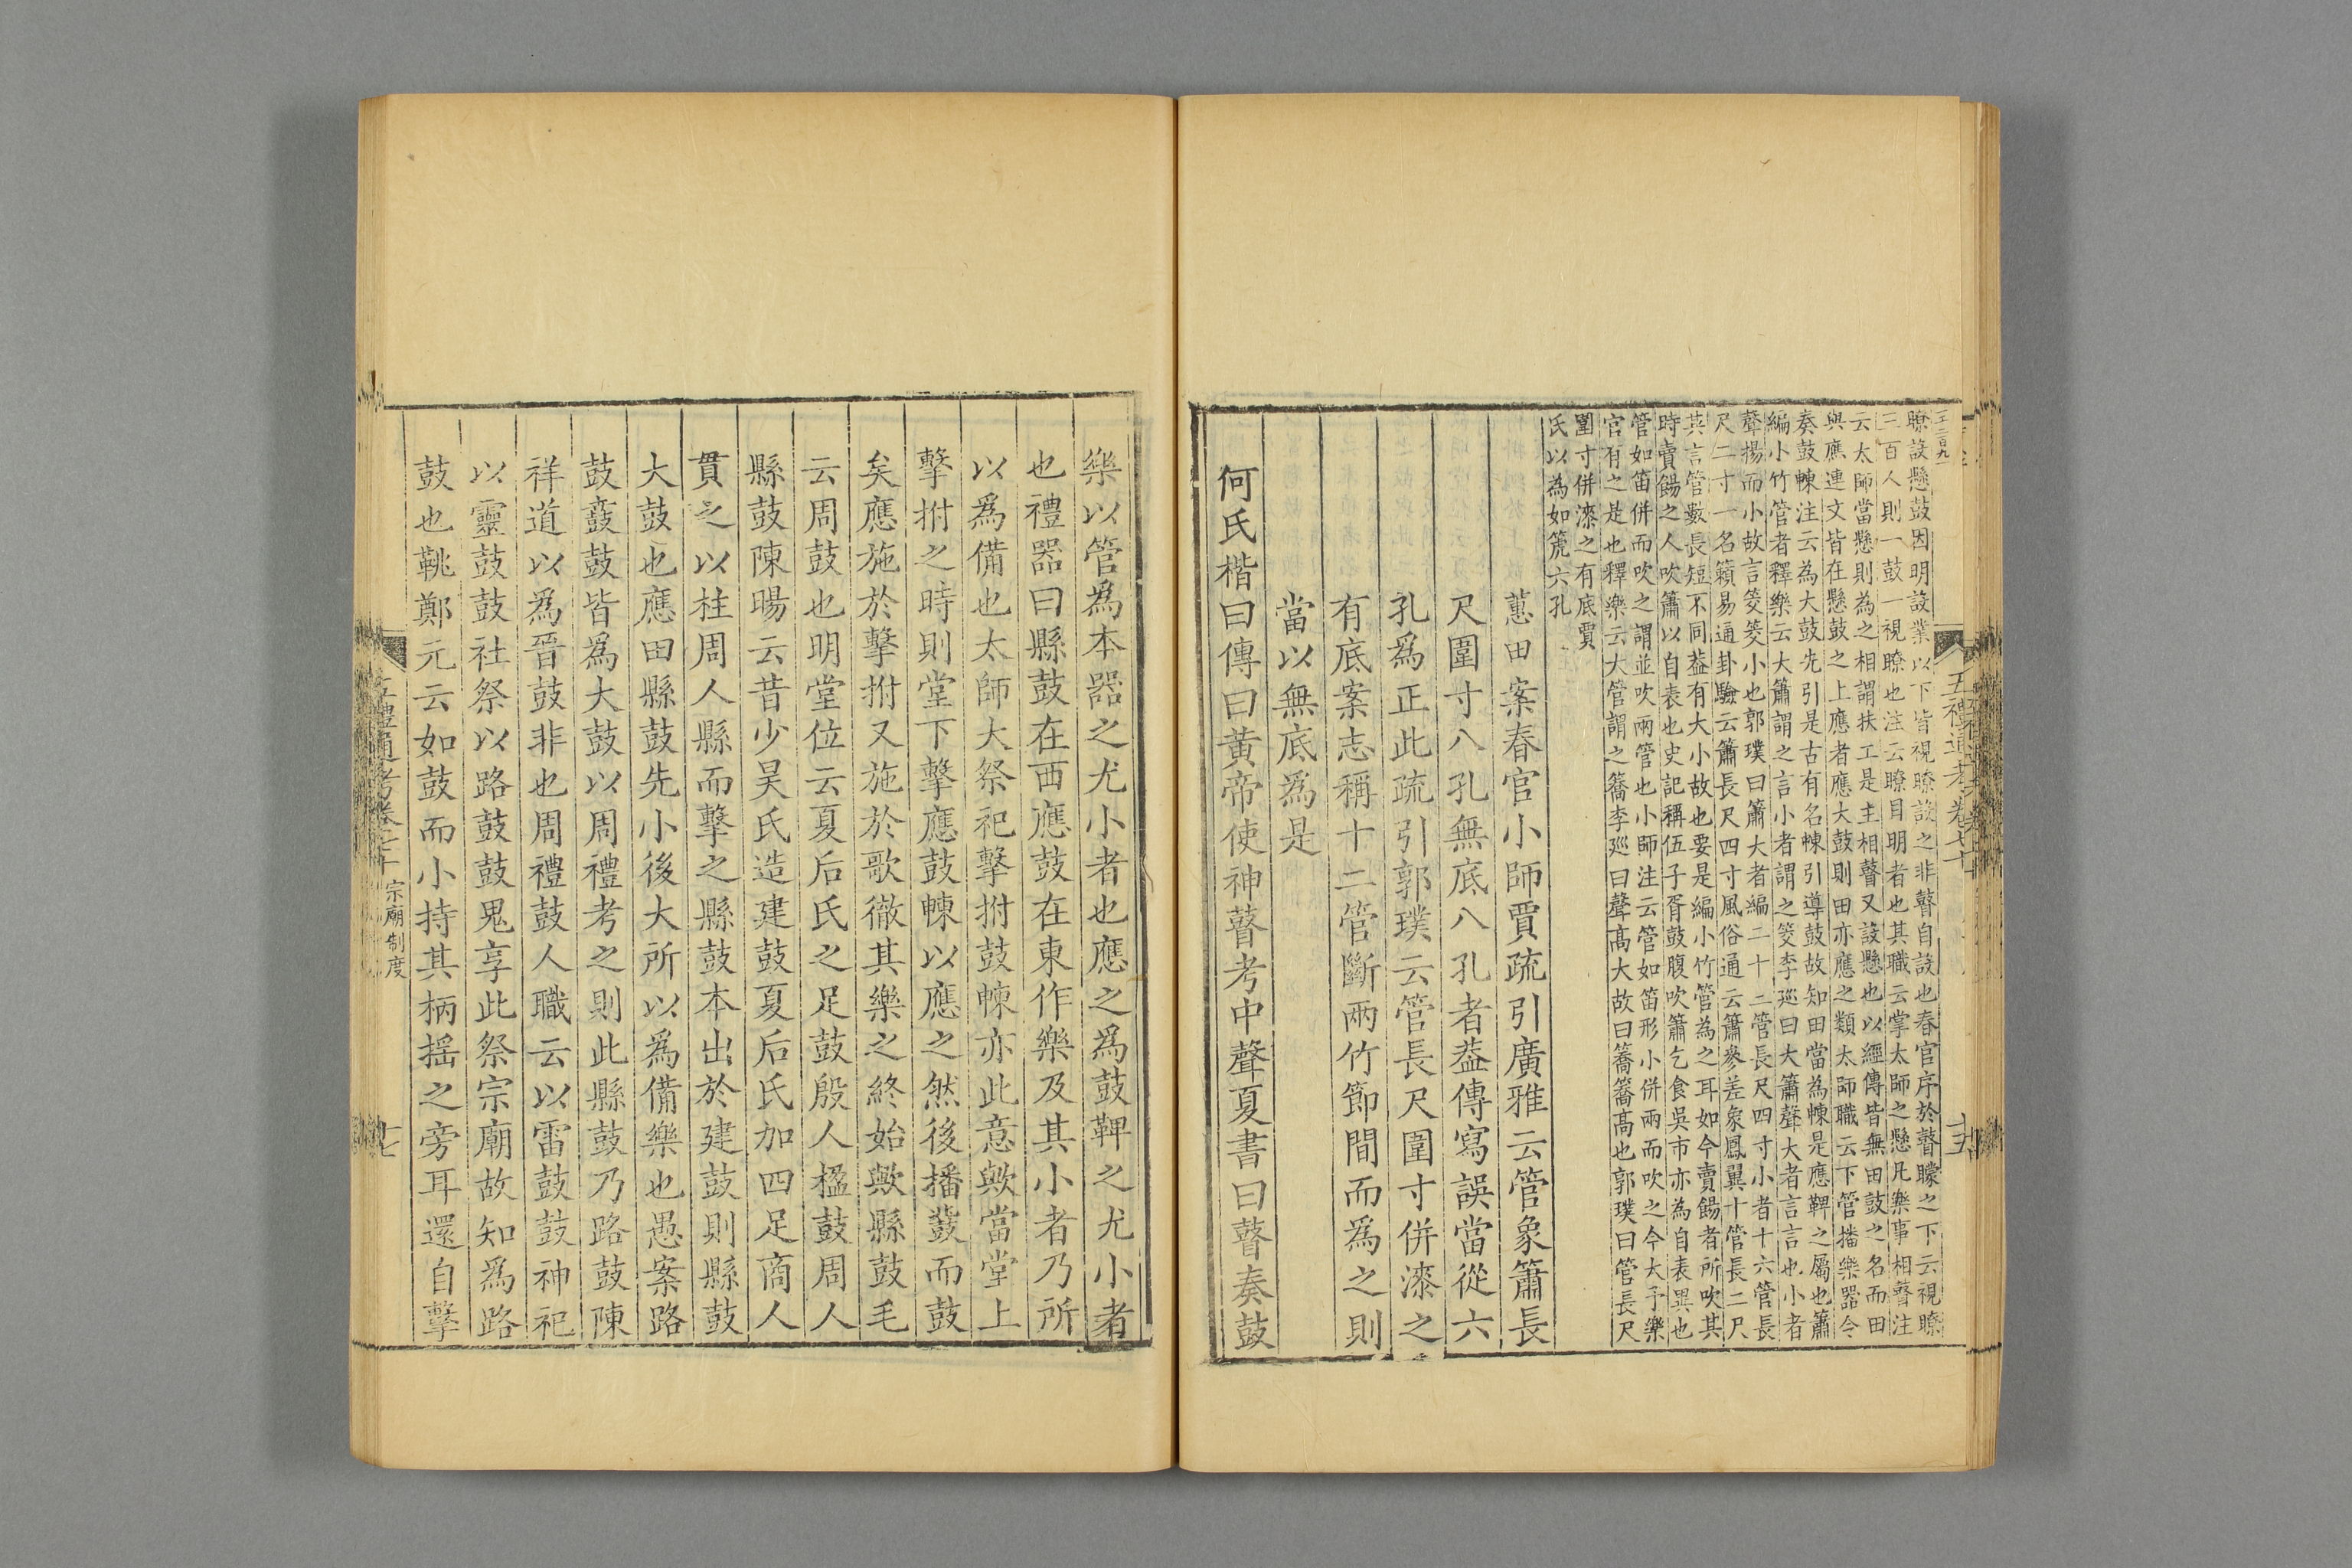 瞭設懸鼓因明設業以下皆視瞭設之非瞽自設也春官序於瞽矇之下云視瞭
三百人則一鼓一視瞭也注云瞭目明者也其職云掌太師之懸凡樂事相瞽注
云太師當懸則為之相謂扶工是主相瞽又設懸也以經傳皆無田鼓之名而田
與應連文皆在懸鼓之上應者應大鼓則田亦應之類太師職云下管播樂器令
奏鼓朄注云為大鼓先引是古有名朄引導鼓故知田當為朄是應鞞之屬也簫
編小竹管者釋樂云大簫謂之言小者謂之筊李廵曰大簫聲大者言言也小者
聲揚而小故言筊筊小也郭璞曰簫大者編二十二管長尺四寸小者十六管長
尺二寸一名籟易通卦驗云簫長尺四寸風俗通云簫參差象鳳翼十管長二尺
其言管數長短不同葢有大小故也要是編小竹管為之耳如今賣餳者所吹其
時賣餳之人吹簫以自表也史記稱伍子胥鼓腹吹簫乞食吳市亦為自表異也
管如笛併而吹之謂並吹兩管也小師注云管如笛形小併兩而吹之今大予樂
官有之是也釋樂云大管謂之簥李廵曰聲高大故曰簥簥高也郭璞曰管長尺
圍寸併漆之有底賈
氏以為如篪六孔
蕙田案春官小師賈疏引廣雅云管象簫長
尺圍寸八孔無底八孔者葢傳寫誤當從六
孔爲正此疏引郭璞云管長尺圍寸併漆之
有底案志稱十二管斷兩竹節間而爲之則
當以無底爲是
何氏楷曰傳曰黃帝使神瞽考中聲夏書曰瞽奏鼓
五禮通考卷七十
十五
樂以管爲本器之尤小者也應之爲鼓鞞之尤小者
也禮器曰縣鼓在西應鼓在東作樂及其小者乃所
以爲備也太師大祭祀擊拊鼓朄亦此意歟當堂上
擊拊之時則堂下擊應鼓朄以應之然後播鼗而鼓
矣應施於擊拊又施於歌徹其樂之終始歟縣鼓毛
云周鼓也明堂位云夏后氏之足鼓殷人楹鼓周人
縣鼓陳暘云昔少昊氏造建鼓夏后氏加四足商人
貫之以柱周人縣而擊之縣鼓本出於建鼓則縣鼓
大鼓也應田縣鼓先小後大所以爲備樂也愚案路
鼓鼖鼓皆爲大鼓以周禮考之則此縣鼓乃路鼓陳
祥道以爲晉鼓非也周禮鼓人職云以雷鼓鼓神祀
以靈鼓鼓社祭以路鼓鼓鬼享此祭宗廟故知爲路
鼓也鞉鄭元云如鼓而小持其柄搖之旁耳還自擊
五禮通考卷七十 宗廟制度